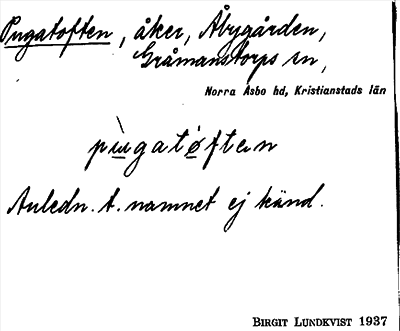 Pugatoften, åker, Åbygården,
Gråmanstorps sn,
Norra Åsbo hd, Kristianstads län
pùugatøftən
Anledn. t. namnet ej känd.
BIRGIT LUNDKVIST 1937